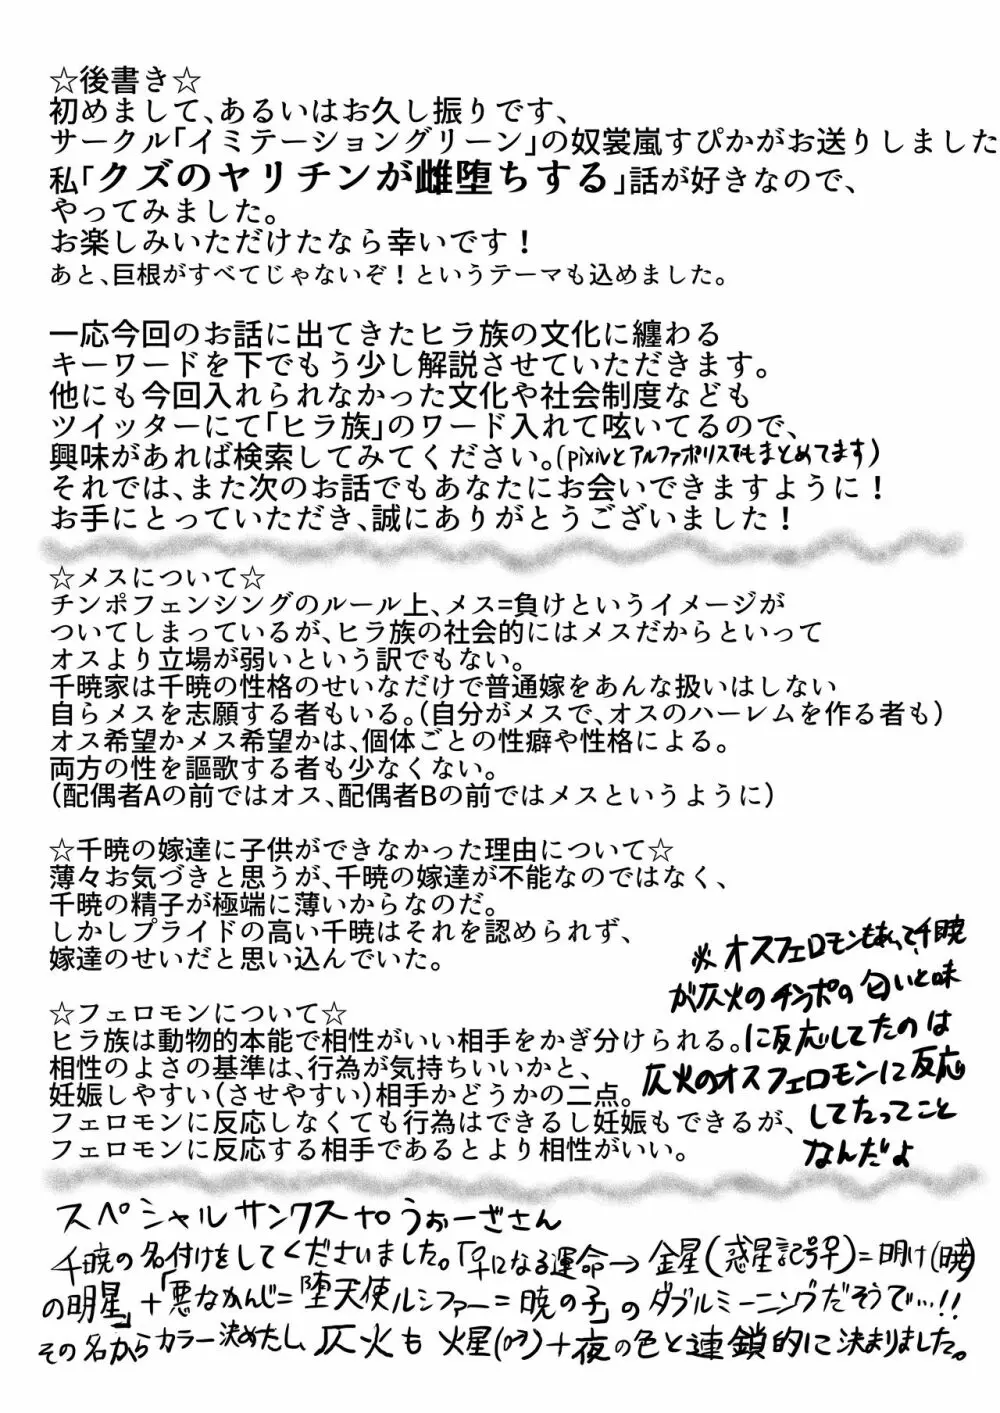 ☆後書き☆
初めまして、あるいはお久し振りです、
サークル「イミテーショングリーン」の奴裳嵐すぴかがお送りしました
私「クズのヤリチンが雌堕ちする」話が好きなので、
やってみました。
お楽しみいただけたなら幸いです！
あと、巨根がすべてじゃないぞ！というテーマも込めました。
一応今回のお話に出てきたヒラ族の文化に纏わる
キーワードを下でもう少し解説させていただきます。
他にも今回入れられなかった文化や社会制度なども
ツイッターにて「ヒラ族」のワード入れて呟いてるので、
興味があれば検索してみてください。(pixivとアルファポリスでもまとめてます)
それでは、また次のお話でもあなたにお会いできますように！
お手にとっていただき、誠にありがとうございました！
☆メスについて☆
チンポフェンシングのルール上、メス=負けというイメージが
ついてしまっているが、ヒラ族の社会的にはメスだからといって
オスより立場が弱いという訳でもない。
千暁家は千暁の性格のせいなだけで普通嫁をあんな扱いはしない
自らメスを志願する者もいる。(自分がメスで、オスのハーレムを作る者も)
オス希望かメス希望かは、個体ごとの性癖や性格による。
両方の性を謳歌する者も少なくない。
(配偶者Aの前ではオス、配偶者Bの前ではメスというように)
☆千暁の嫁達に子供ができなかった理由について☆
薄々お気づきと思うが、千暁の嫁達が不能なのではなく、
千暁の精子が極端に薄いからなのだ。
しかしプライドの高い千暁はそれを認められず、
嫁達のせいだと思い込んでいた。
☆フェロモンについて☆
ヒラ族は動物的本能で相性がいい相手をかぎ分けられる。
相性のよさの基準は、行為が気持ちいいかと、
妊娠しやすい(させやすい)相手かどうかの二点。
フェロモンに反応しなくても行為はできるし妊娠もできるが、
フェロモンに反応する相手であるとより相性がいい。
※オスフェロモンもあって千暁
が仄火のチンポの匂いと味
に反応してたのは
仄火のオスフェロモンに反応
してたってこと
なんだよ
スペシャルサンクス to うぉーざさん
千暁の名付けをしてくださいました。「♀になる運命→金星(惑星記号♀)=明け(暁)
の明星」+「悪なかんじ=堕天使ルシファー=暁の子」のダブルミーニングだそうで…!!
その名からカラー決めたし、仄火も火星(♂)+夜の色と連鎖的に決まりました。